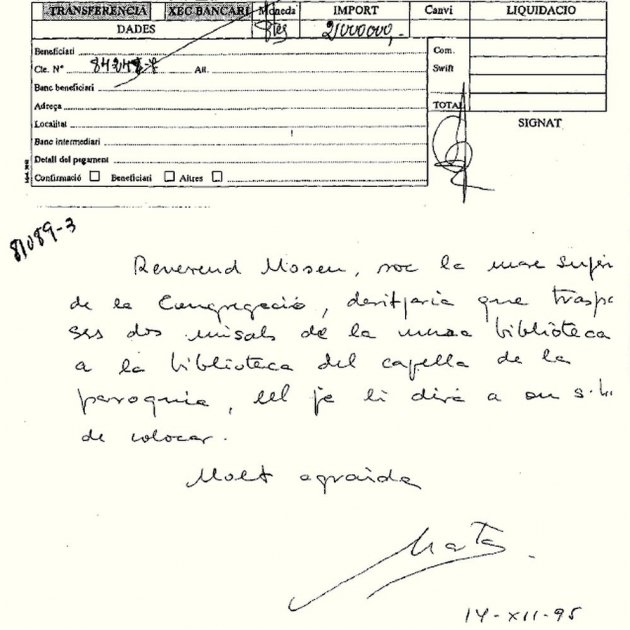 TRANSFERENCIA XEC BANCARI Moneda IMPORT Canvi LIQUIDACIO
DADES Ptes 2'000'000,-
Beneficiari Com.
Cte. Nº Alt. Swift
Banc beneficiari
Adreça TOTAL
Localitat SIGNAT
Banc intermediari
Detall del pagament
Confirmació Beneficiari Altres
81089-3
Reverend Mosen, soc la mare super
de la Congregació, desitjaria que traspa
ses dos misals de la meva biblioteca
a la biblioteca del capella de la
parroquia, ell ja li dirá a on s'ha
de colocar.
Molt agraida
Marta
14-XII-95